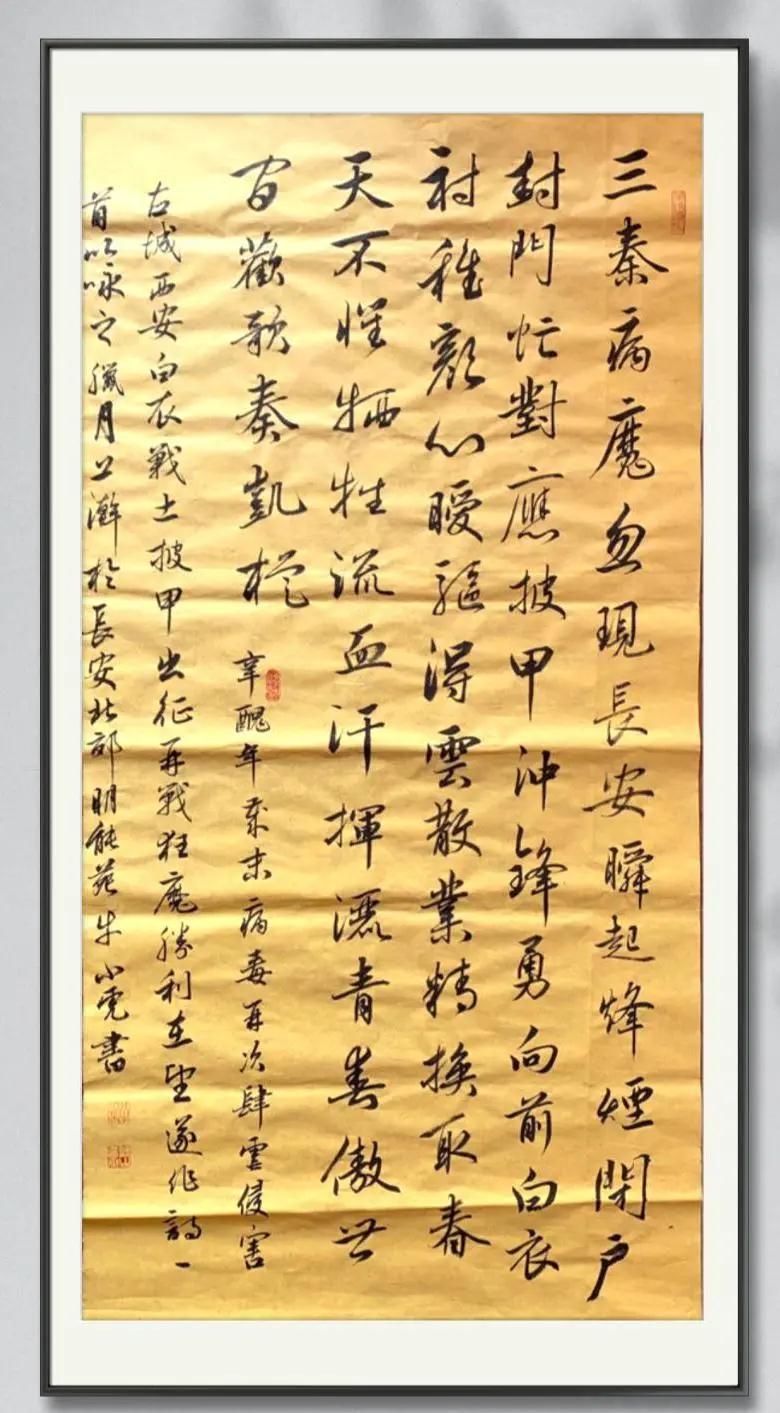 三秦病魔忽現長安瞬起烽煙閉户
封門忙對應披甲沖鋒勇向前白衣
襯稚顏心曖驅得雲散業精換取春
天不惺牺牲流血汗揮灑青春傲世
間歡歌奏凱
辛醜年歲末病毒再次肆虐侵害
古城西安白衣戰士披甲出征再戰狂魔勝利在望遂作詩一
首以咏之臘月上澣於長安北郊明能苑牛小虎書